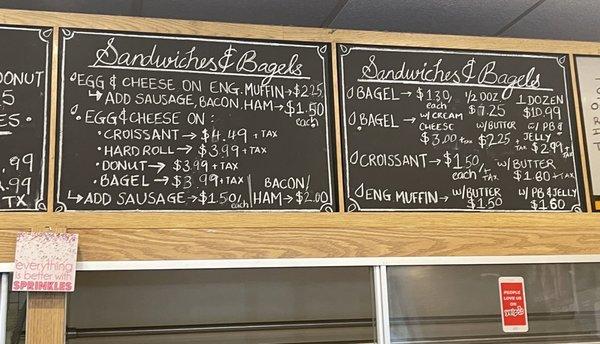 DONUT
Sandwiches & Bagels
EGG & CHEESE ON ENG. MUFFIN → $2.25
↳ ADD SAUSAGE, BACON, HAM → $1.50 each
EGG & CHEESE ON :
• CROISSANT → $4.49 + TAX
• HARD ROLL → $3.99 + TAX
• DONUT → $3.99 + TAX
• BAGEL → $3.99 + TAX
↳ ADD SAUSAGE → $1.50/each
BACON/
HAM → $2.00
Sandwiches & Bagels
BAGEL → $1.30 each
1/2 DOZ $7.25
1 DOZEN $10.99
BAGEL → W/CREAM CHEESE $3.00 + TAX
W/BUTTER $2.25 + TAX
W/PB & JELLY $2.99 + TAX
CROISSANT → $1.50 each/ + TAX
W/BUTTER $1.80 + TAX
ENG. MUFFIN → W/BUTTER $1.50
W/PB & JELLY $1.60
everything
is better with
SPRINKLES
PEOPLE
LOVE US
ON
yelp